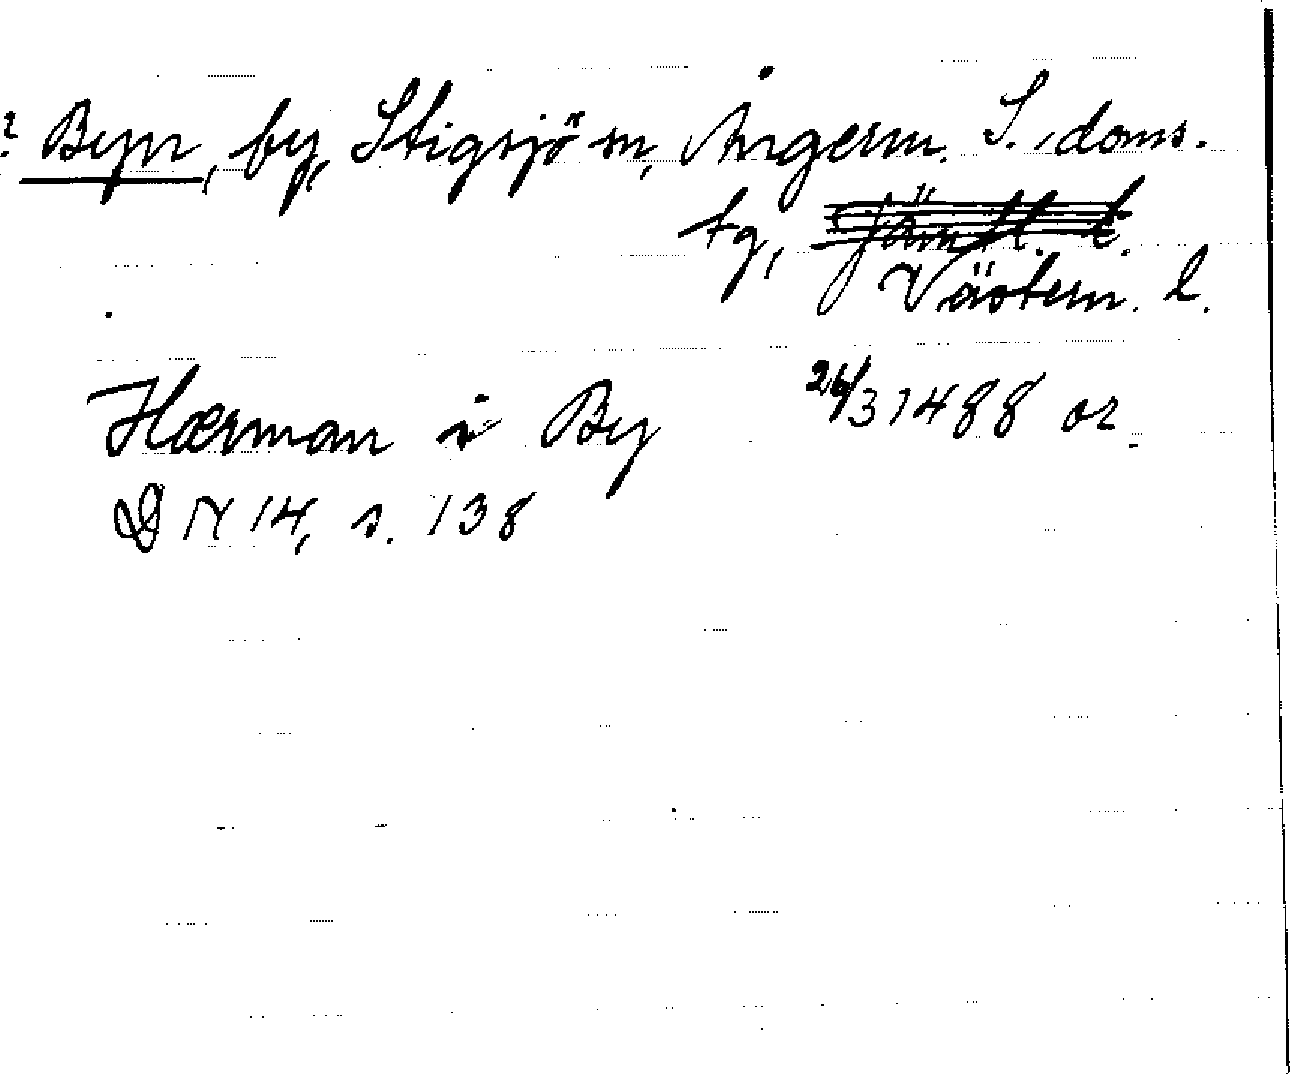 ? Byn, by, Stigsjö sn, Ångerm. S. doms.
tg, Jämtl. l.
Västern. l.
Hærman i By 26/3 1488 or.
DN 14, s. 138